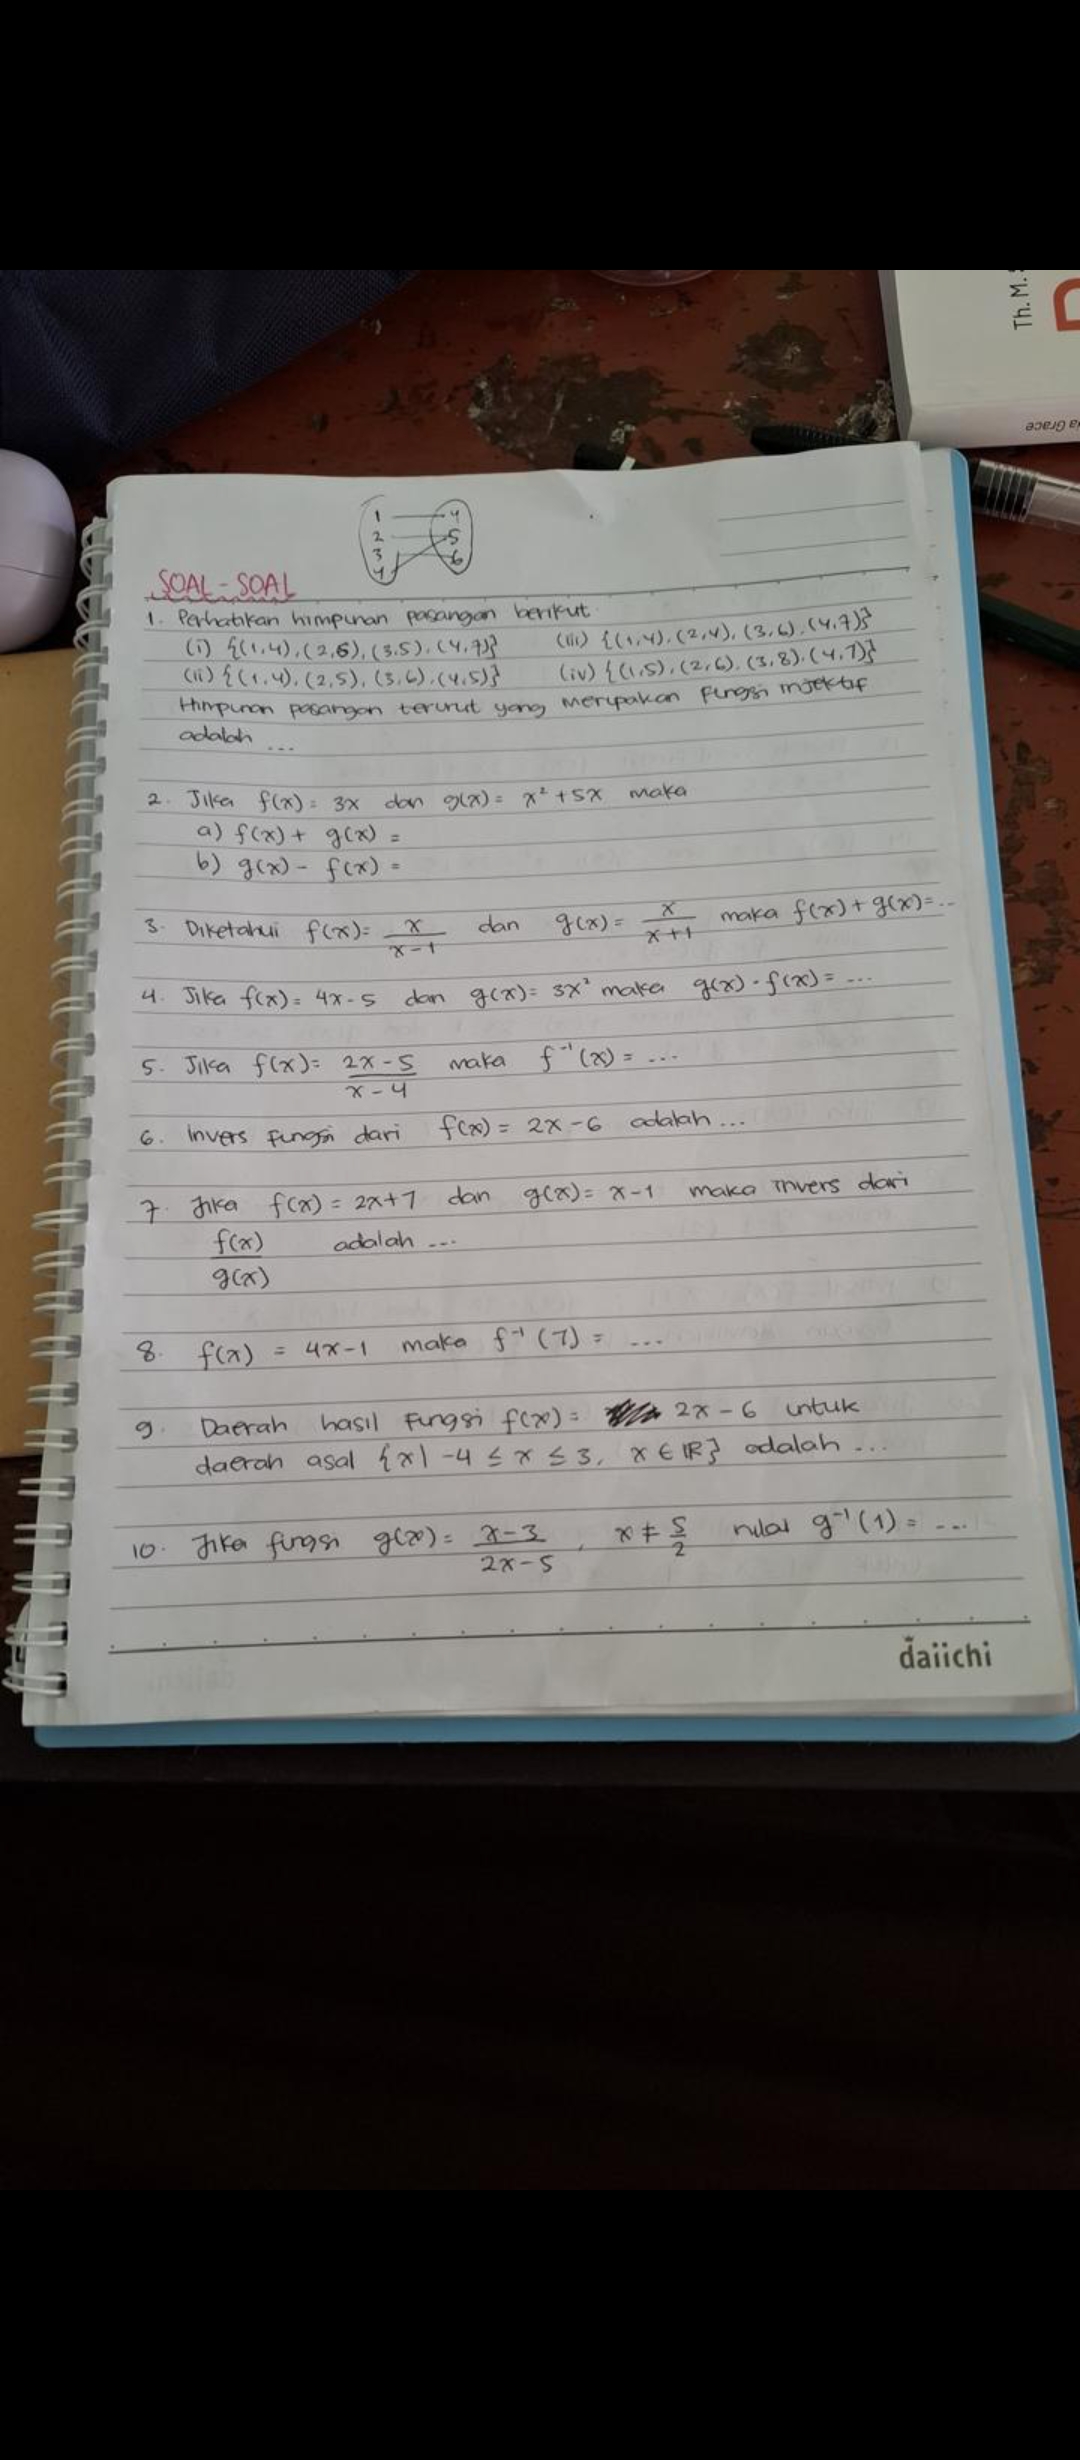 Th. M. S
ia Grace
1 4
2 5
3 6
4
SOAL - SOAL
1. Perhatikan himpunan pasangan berikut
(i) {(1,4), (2,6), (3,5), (4,7)} (iii) {(1,4), (2,4), (3,6), (4,7)}
(ii) {(1,4), (2,5), (3,6), (4,5)} (iv) {(1,5), (2,6), (3,8), (4,7)}
Himpunan pasangan terurut yang merupakan fungsi injektif
adalah ...
2. Jika f(x) = 3x dan g(x) = x² + 5x maka
a) f(x) + g(x) =
b) g(x) - f(x) =
3. Diketahui f(x) = x/(x-1) dan g(x) = x/(x+1) maka f(x) + g(x) = ...
4. Jika f(x) = 4x - 5 dan g(x) = 3x² maka g(x) · f(x) = ...
5. Jika f(x) = (2x-5)/(x-4) maka f⁻¹(x) = ...
6. Invers fungsi dari f(x) = 2x - 6 adalah ...
7. Jika f(x) = 2x + 7 dan g(x) = x - 1 maka invers dari
f(x)/g(x) adalah ...
8. f(x) = 4x - 1 maka f⁻¹(7) = ...
9. Daerah hasil Fungsi f(x) = 2x - 6 untuk
daerah asal {x | -4 ≤ x ≤ 3, x ∈ R} adalah ...
10. Jika fungsi g(x) = (x-3)/(2x-5), x ≠ 5/2 nilai g⁻¹(1) = ...
daiichi